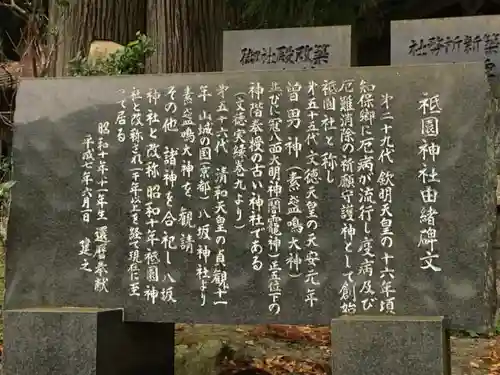 祇園神社由緒碑文
第二十九代 欽明天皇の十六年頃
知保郷に厄病が流行し疫病及び
厄難消除の祈願守護神として創始
祇園社と称し
第五十五代 文徳天皇の天安元年
曽男神(素盞鳴大神)
並びに冠八面大明神(闇龗神)正五位下の
神階奉授の古い神社である
(文徳実録巻九より)
第五十六代 清和天皇の貞観十一
年 山城の国(京都)八坂神社より
素盞鳴大神を 観請
その他 諸神を合祀し 八坂
神社と改称 昭和十年祇園神
社と改称され二千年以上を経て現在に至
って居る
昭和十年十二年生 還暦奉献
平成七年六月吉日 建之
御社殿改築
新築社務所